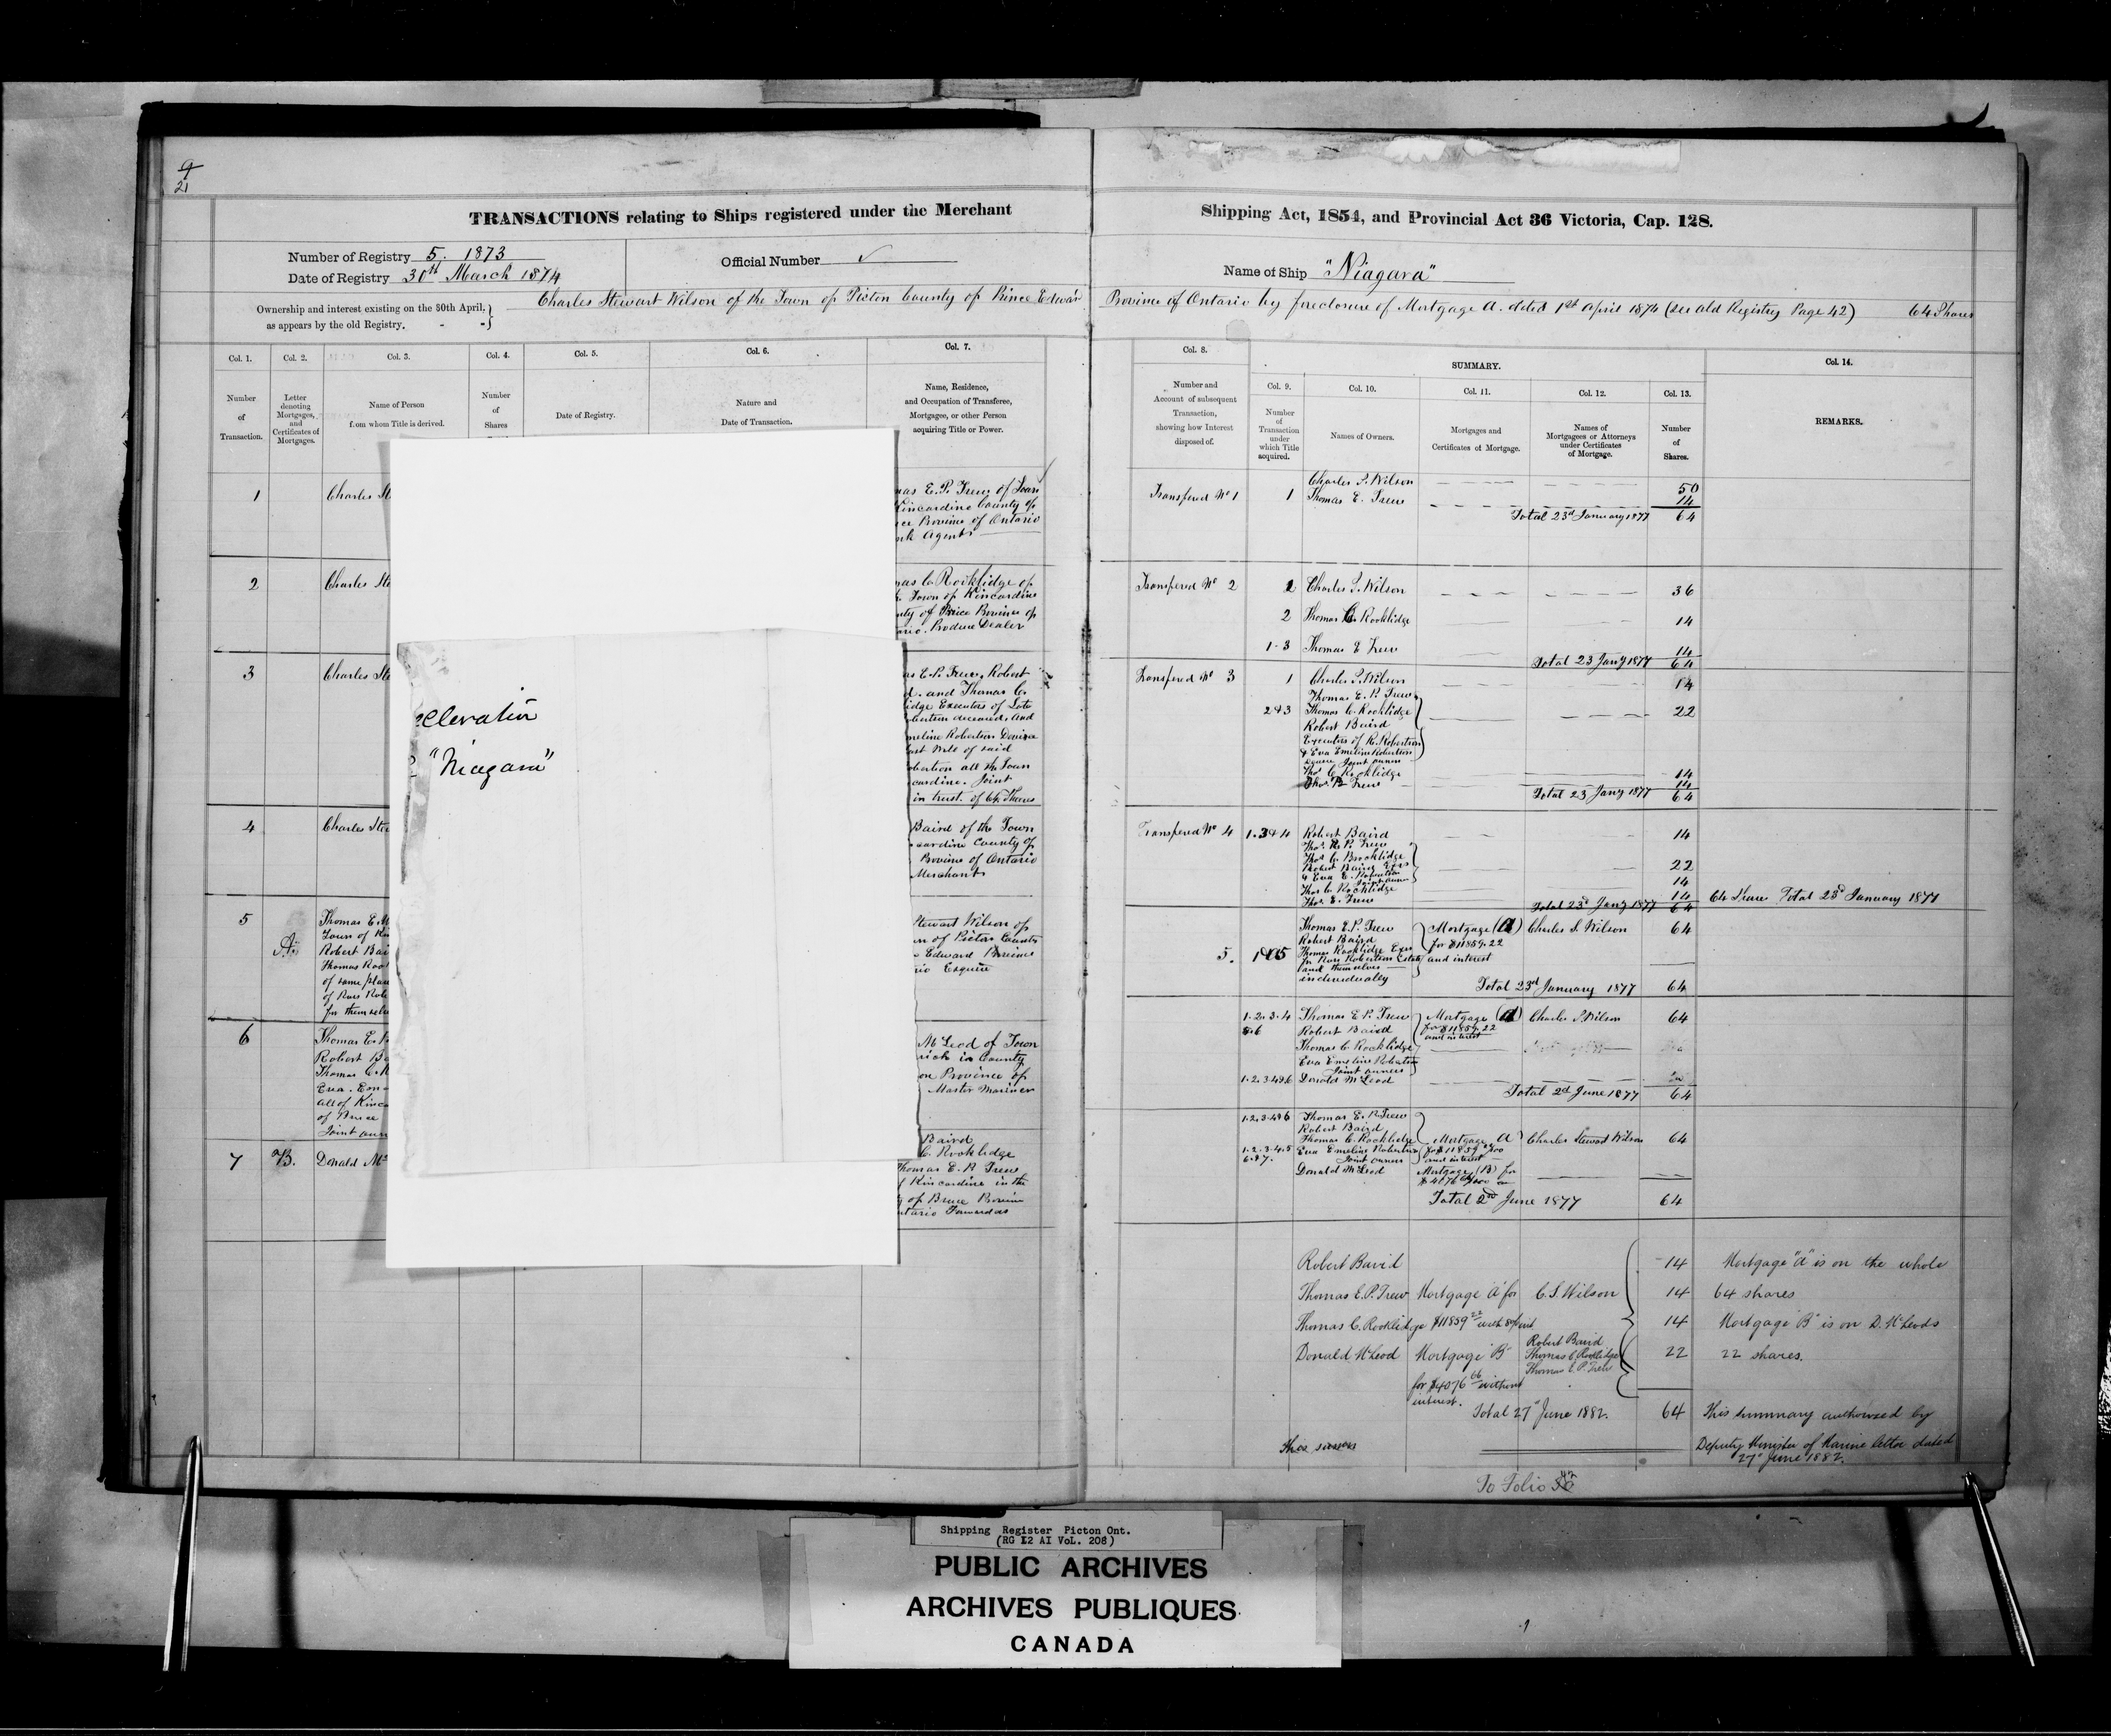 9
21
TRANSACTIONS relating to Ships registered under the Merchant
Shipping Act, 1854, and Provincial Act 36 Victoria, Cap. 128.
Number of Registry 5. 1873
Date of Registry 30th March 1874
Official Number
Name of Ship "Niagara"
Ownership and interest existing on the 30th April,
as appears by the old Registry.
Charles Stewart Wilson of the Town of Picton County of Prince Edward
Province of Ontario by foreclosure of Mortgage A. dated 1st April 1874 (see old Registry Page 42) 64 Shares
Col. 1.
Number
of
Transaction.
Col. 2.
Letter
denoting
Mortgages,
and
Certificates of
Mortgages.
Col. 3.
Name of Person
from whom Title is derived.
Col. 4.
Number
of
Shares
Col. 5.
Date of Registry.
Col. 6.
Nature and
Date of Transaction.
Col. 7.
Name, Residence,
and Occupation of Transferee,
Mortgagee, or other Person
acquiring Title or Power.
Col. 8.
Number and
Account of subsequent
Transaction,
showing how Interest
disposed of.
SUMMARY.
Col. 9.
Number
of
Transaction
under
which Title
acquired.
Col. 10.
Names of Owners.
Col. 11.
Mortgages and
Certificates of Mortgage.
Col. 12.
Names of
Mortgagees or Attorneys
under Certificates
of Mortgage.
Col. 13.
Number
of
Shares.
Col. 14.
REMARKS.
1
Charles
E. P. Trew of Town
Kincardine County of
Province of Ontario
Agent
2
Charles
C. Rooklidge of
Town of Kincardine
of Bruce Province of
Produce Dealer
3
Charles
E. P. Trew, Robert
and Thomas C.
Executors of Late
deceased, and
Robertson Devisee
Will of said
all the Town
Joint
in trust. of 64 Shares
4
Charles
Baird of the Town
County of
Province of Ontario
Merchant
5
A.
Thomas E.
Town of
Robert
Thomas
of same
of Ross
for
Stewart Wilson of
of Picton County
Edward Province
Esquire
6
Thomas E.
Robert
Thomas C.
Eva.
all of
of Bruce
Joint
McLeod of Town
in County
Province of
Master Mariner
7
B.
Donald
Baird
C. Rooklidge
Thomas E. P. Trew
of Kincardine in the
of Bruce Province
Forwarders
"Niagara"
Transfered No 1
1
Charles S. Wilson
50
Thomas E. Trew
14
Total 23d January 1877
64
Transfered No 2
2
Charles S. Wilson
36
2
Thomas C. Rooklidge
14
1-3
Thomas E Trew
14
Total 23 Jany 1877
64
Transfered No 3
1
Charles S. Wilson
14
Thomas E. P. Trew
2&3
Thomas C. Rooklidge
22
Robert Baird
Executors of R. Robertson
& Eva Emeline Robertson
Devisee Joint owners
Thos C Rooklidge
14
Thos. P. Trew
14
Total 23 Jany 1877
64
Transfered No 4
1.3&4
Robert Baird
14
Robert Baird
22
& Eva E. Robertson
Joint owners
14
Thos C Rooklidge
14
Thos. E. Trew
Total 23d Jany 1877
64
64 Shares Total 23d January 1877
5.
Thomas E. P. Trew
Robert Baird
Thomas Rooklidge Exrs
for Ross Robertsons Estate
and themselves
individually
Mortgage (A)
for $11859.22
and interest
Charles S. Wilson
64
Total 23d January 1877
64
1.2.3.4
5.6
Thomas E P. Trew
Robert Baird
Thomas C. Rooklidge
Eva Emeline Robertson
Joint owners
Mortgage (A)
for $11859.22
and interest
Charles S. Wilson
64
1.2.3.4&6
Donald McLeod
Total 2d June 1877
64
1.2.3.4&6
Thomas E. P. Trew
Robert Baird
Thomas C. Rooklidge
1.2.3.4.5
6.&7.
Eva Emeline Robertson
Joint owners
Donald McLeod
Mortgage A
for $11859 22/100
and interest
Mortgage (B) for
Charles Stewart Wilson
64
Total 2nd June 1877
64
Robert Bavid
14
Thomas E. P. Trew Mortgage "A" for C. S. Wilson
14
Thomas C. Rooklidge $11859 22
14
Donald McLeod Mortgage "B"
Robert Bavid
Thomas C Rooklidge
Thomas E. P. Trew
22
for $4076 66 without
interest.
Total 27" June 1882.
64
Mortgage "A" is on the whole
64 shares
Mortgage "B" is on D. McLeods
22 shares.
This summary authorized by
Deputy Minister of Marine letter dated
27" June 1882.
To Folio
Shipping Register Picton Ont.
(RG 12 AI VoL. 208)
PUBLIC ARCHIVES
ARCHIVES PUBLIQUES
CANADA